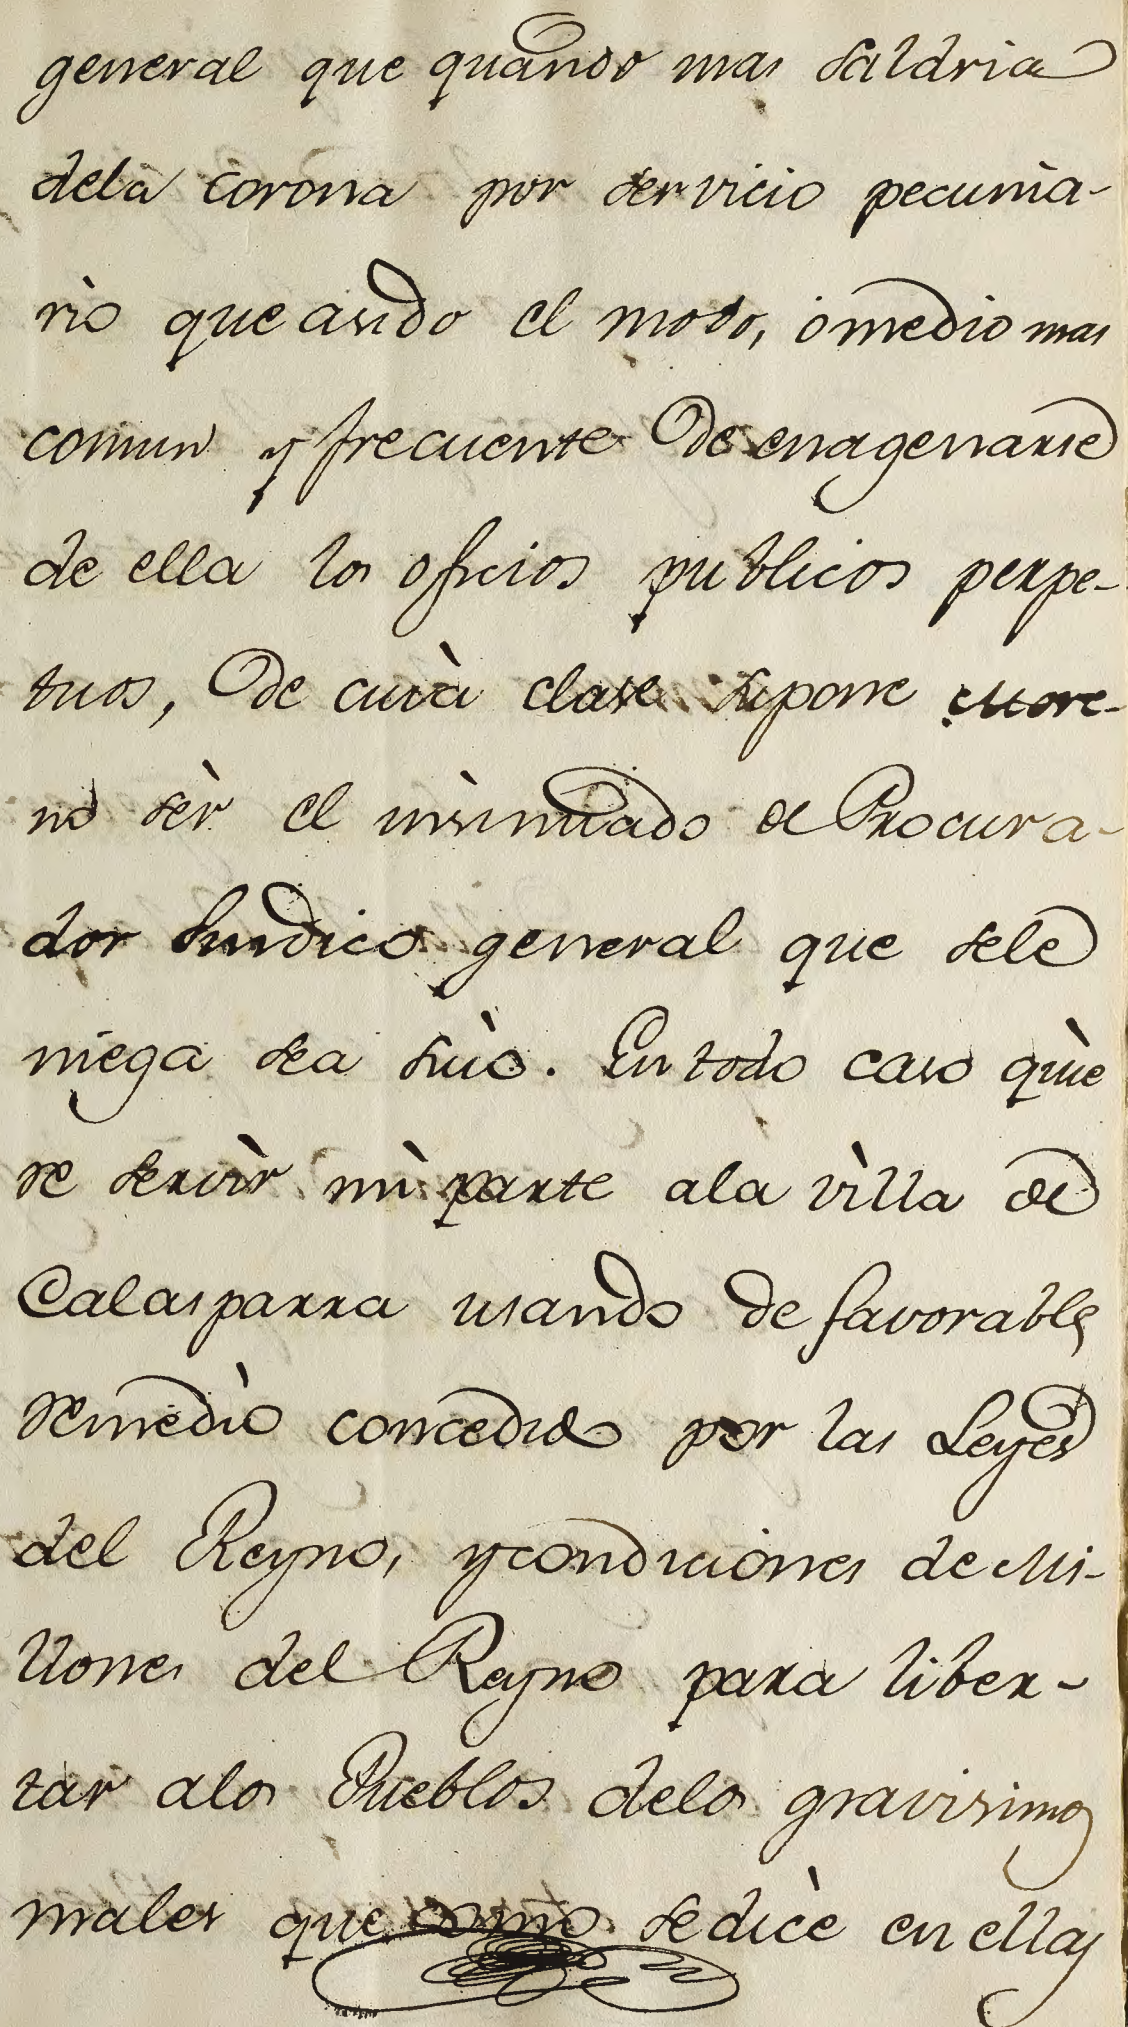 general que quando mas saldria
dela corona por servicio pecunia-
rio que asido el modo, ò medio mas
comun y frecuente de enagenarse
de ella los oficios publicos perpe-
tuos, de cuià clase supone More-
no sèr el insinuado de Procura-
dor Sindico general que sele
niega sea suiò. En todo caso quie
re servir mi parte ala villa de
Calasparra usando de favorable
remedio concedido por las Leyes
del Reyno, y condiciones de Mi-
llones del Reyno para liber-
tar alos Pueblos delos gravisimos
males que como sedice en ellas